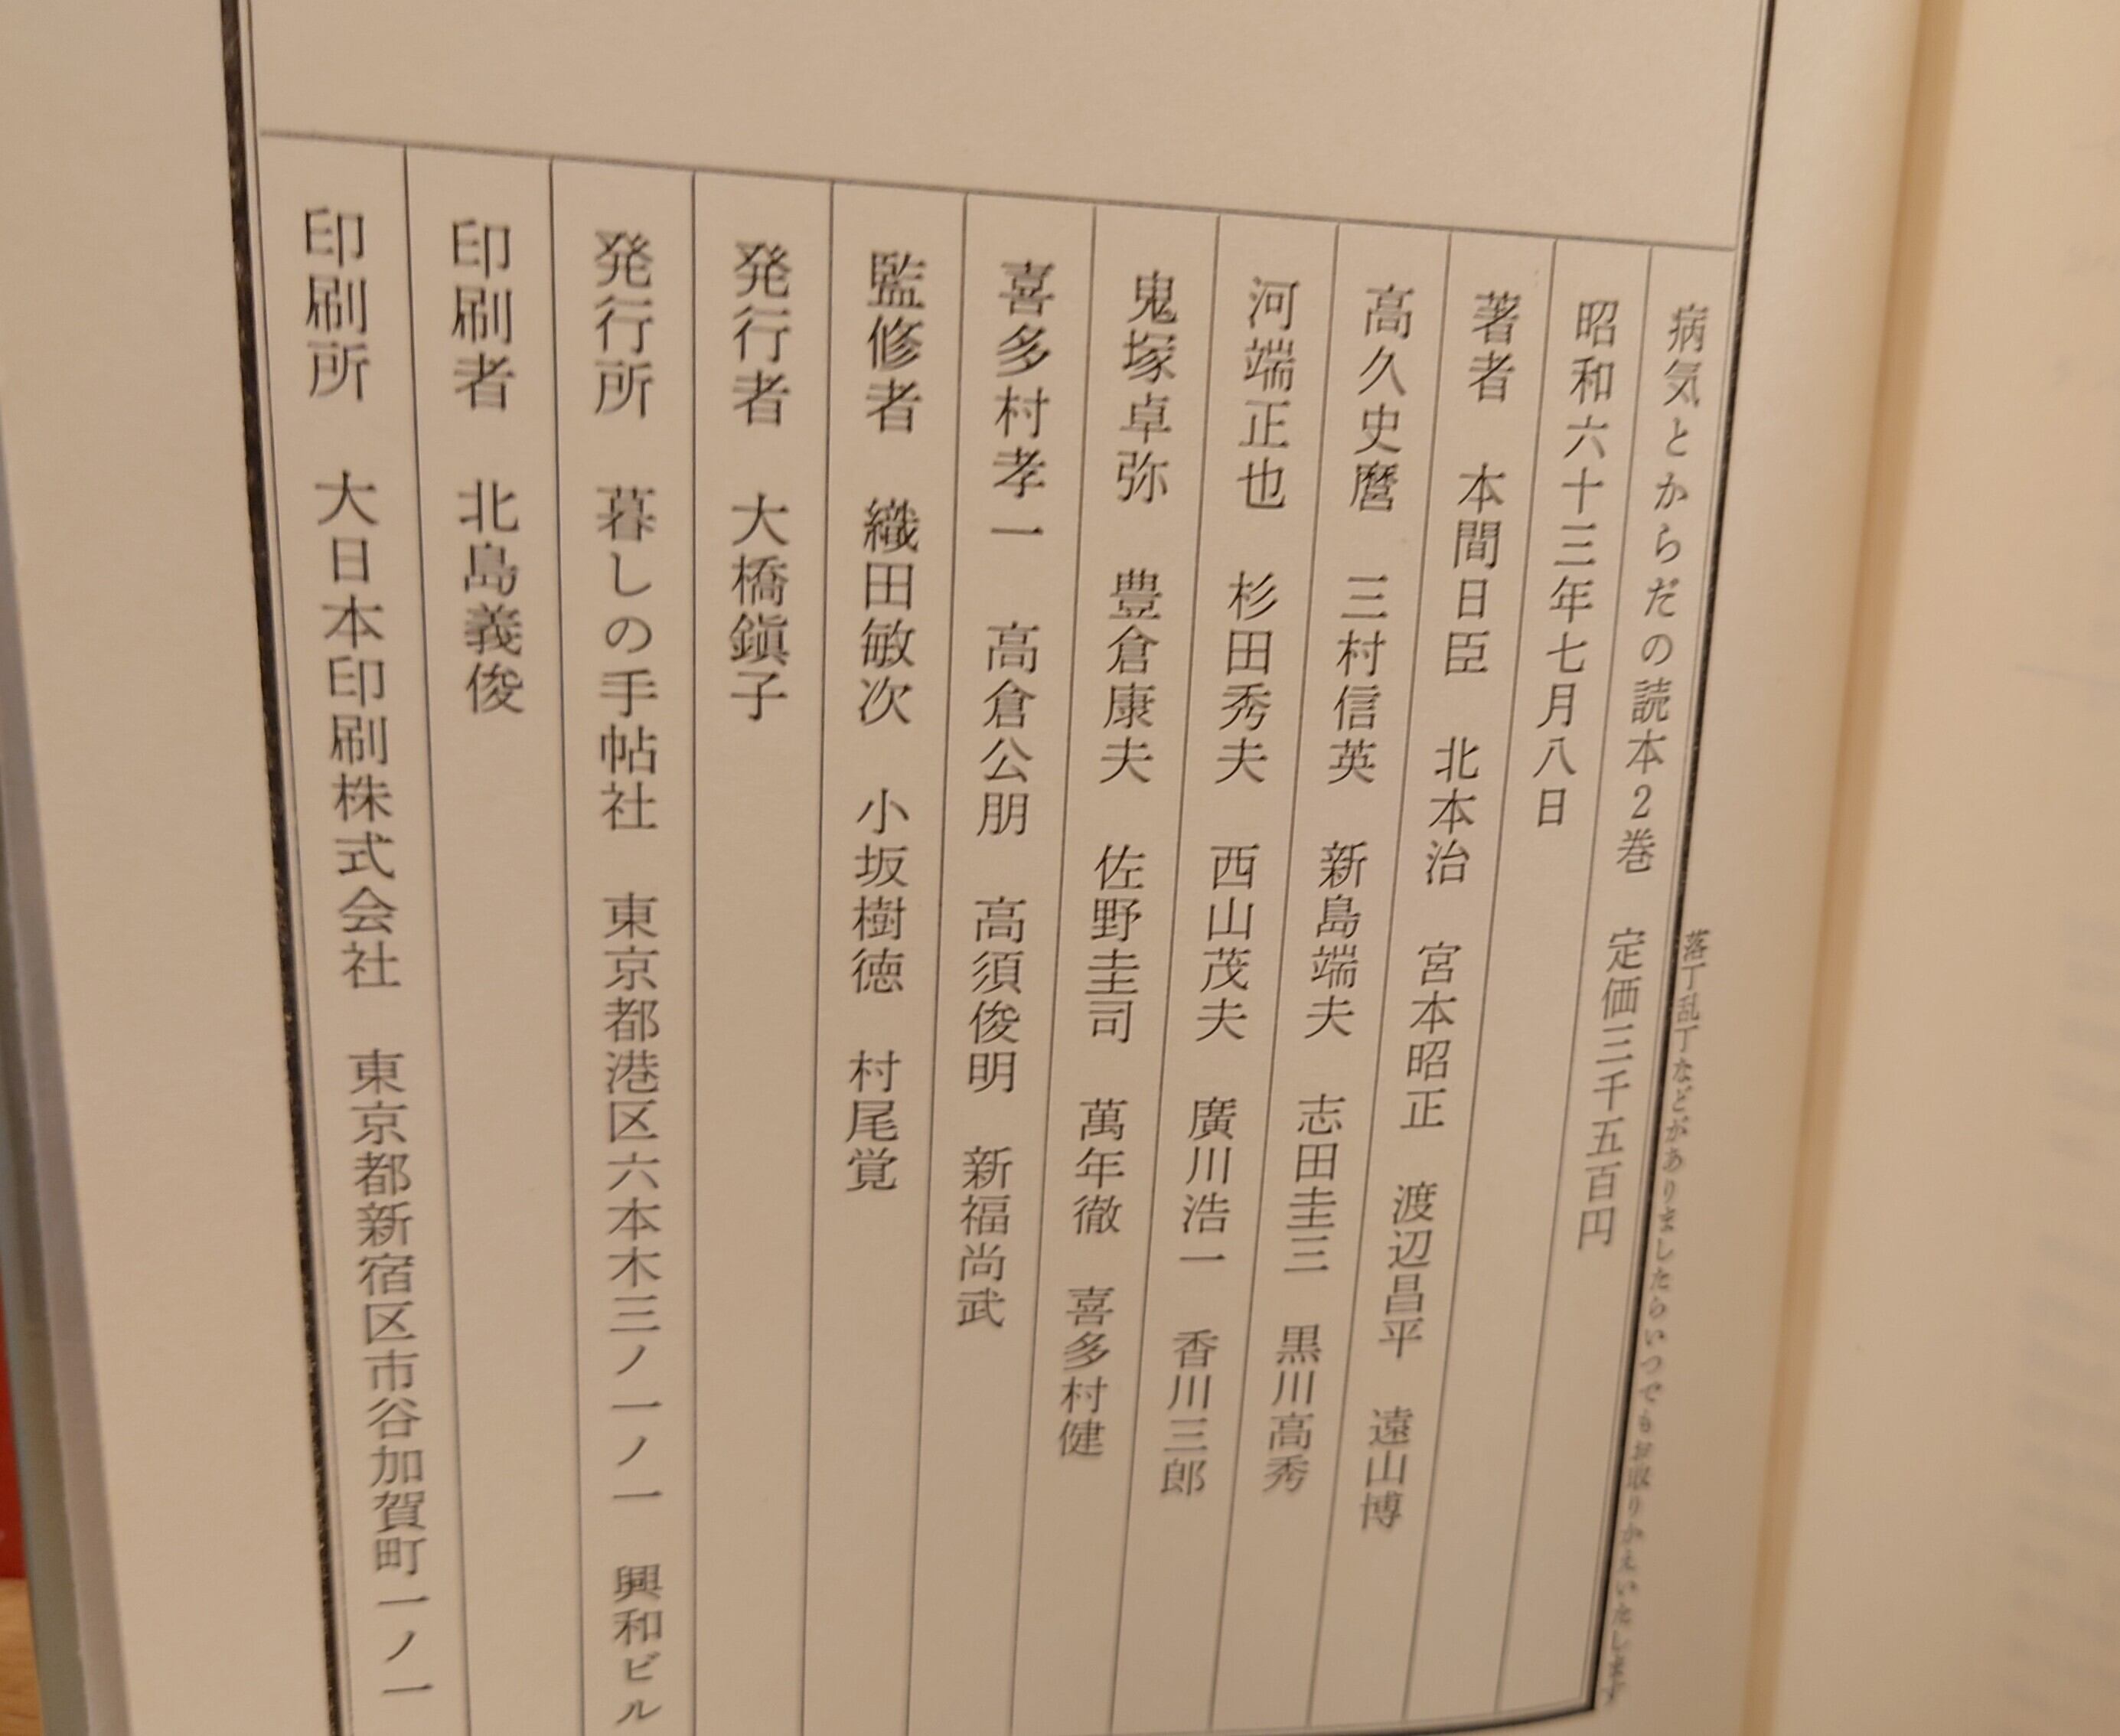 落丁乱丁などがありましたらいつでもお取りかえいたします
病気とからだの読本2巻　定価三千五百円
昭和六十三年七月八日
著者　本間日臣　北本治　宮本昭正　渡辺昌平　遠山博
高久史麿　三村信英　新島端夫　志田圭三　黒川高秀
河端正也　杉田秀夫　西山茂夫　廣川浩一　香川三郎
鬼塚卓弥　豊倉康夫　佐野圭司　萬年徹　喜多村健
喜多村孝一　高倉公朋　高須俊明　新福尚武
監修者　織田敏次　小坂樹徳　村尾覚
発行者　大橋鎭子
発行所　暮しの手帖社　東京都港区六本木三ノ一ノ一　興和ビル
印刷者　北島義俊
印刷所　大日本印刷株式会社　東京都新宿区市谷加賀町一ノ一